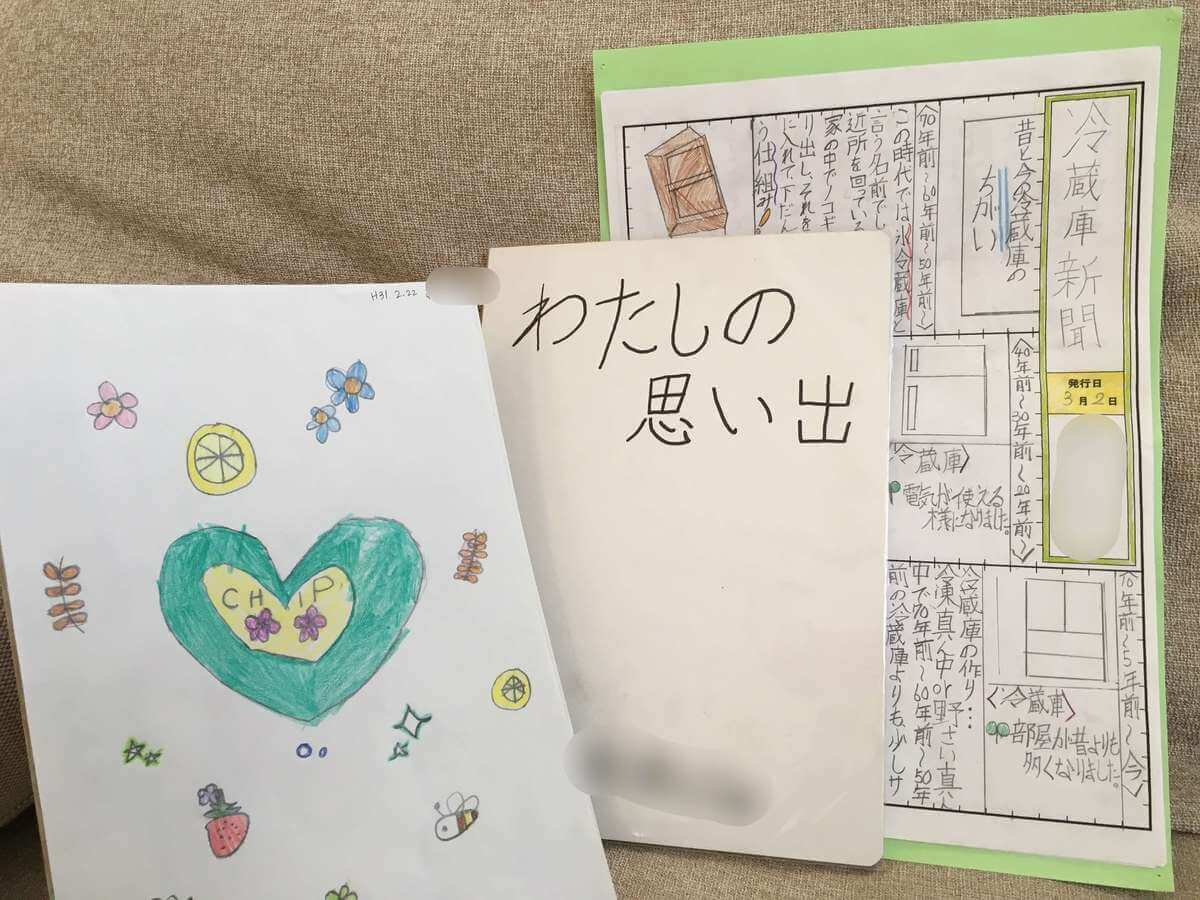 H31 2.22
CHIP
わたしの
思い出
冷蔵庫新聞
発行日
3月2日
昔と今の冷蔵庫の
ちがい
〈70年前〜60年前〜50年前〉
この時代では氷冷蔵庫と
言う名前でし
近所を回っている
家の中でノコギ
り出し、それを
に入れて、下だん
う仕組み。
〈40年前〜30年前〜20年前〉
〈冷蔵庫〉
電気が使える
様になりました。
〈10年前〜5年前〜今〉
〈冷蔵庫〉
部屋が昔よりも
多くなりました。
冷蔵庫の作り…
冷凍真ん中or野さい真ん
中で70年前〜60年前〜50年
前の冷蔵庫よりも少しサ